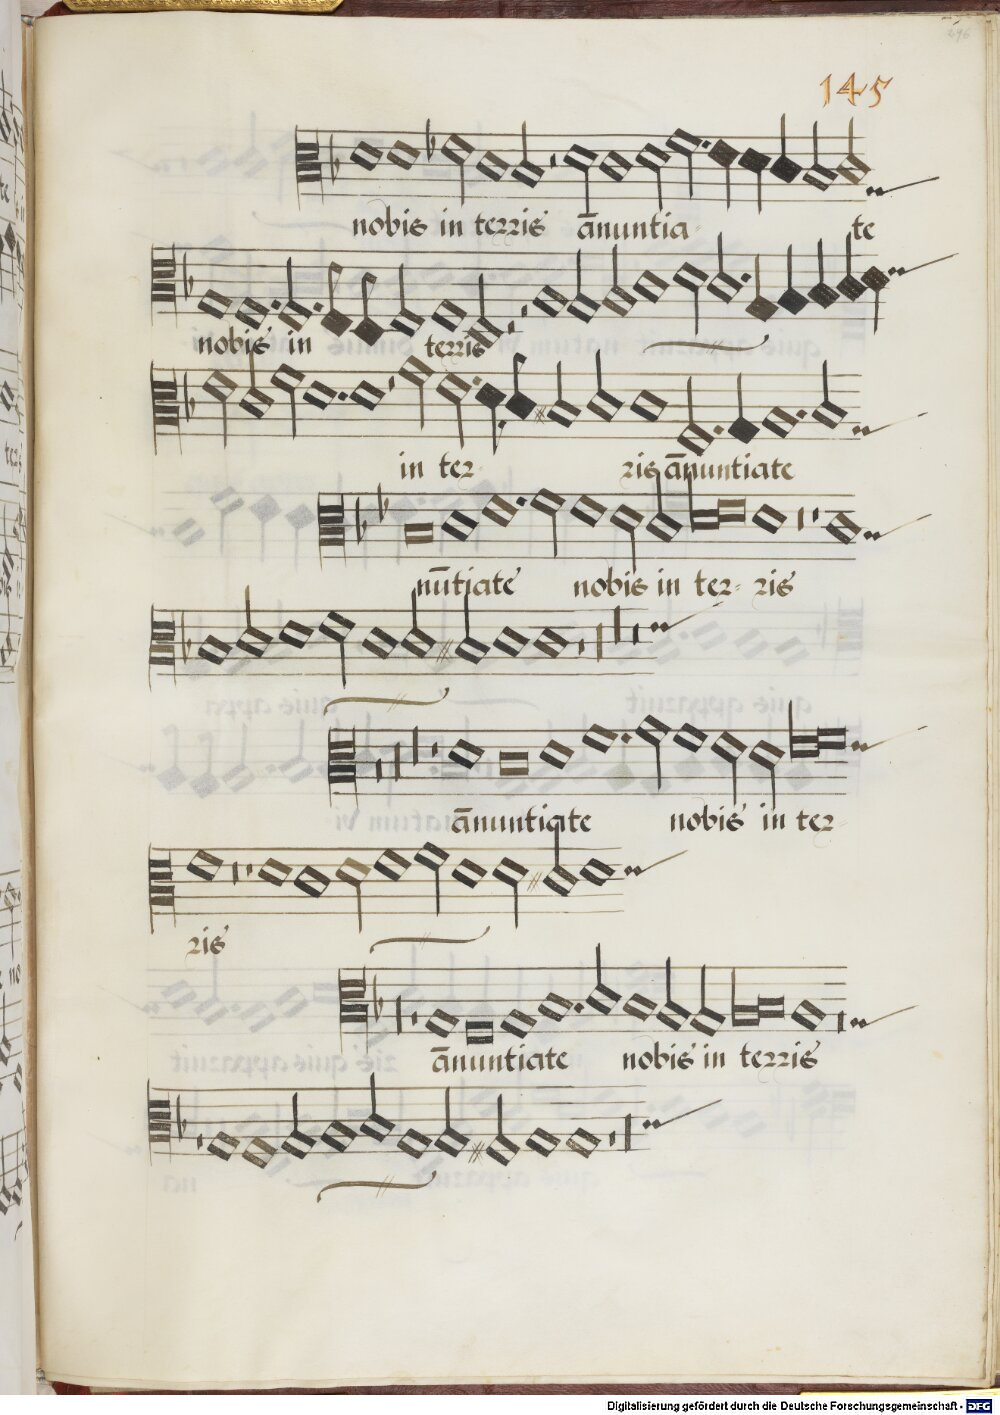 145
nobis in terris ānuntia- te
nobis in terris
in ter- ris ānuntiate
nūtiate nobis in ter- ris
ānuntiate nobis in ter-
ris
ānuntiate nobis in terris
Digitalisierung gefördert durch die Deutsche Forschungsgemeinschaft - DFG